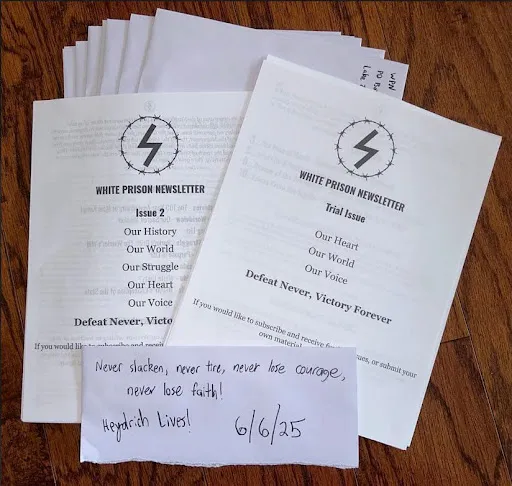 WPN
PO B
Lake
WHITE PRISON NEWSLETTER
Issue 2
Our History
Our World
Our Struggle
Our Heart
Our Voice
Defeat Never, Victo
If you would like to subscribe and receive
WHITE PRISON NEWSLETTER
Trial Issue
Our Heart
Our World
Our Voice
Defeat Never, Victory Forever
If you would like to subscribe and receive f ues, or submit your
own material
Never slacken, never tire, never lose courage,
never lose faith!
Heydrich Lives!
6/6/25